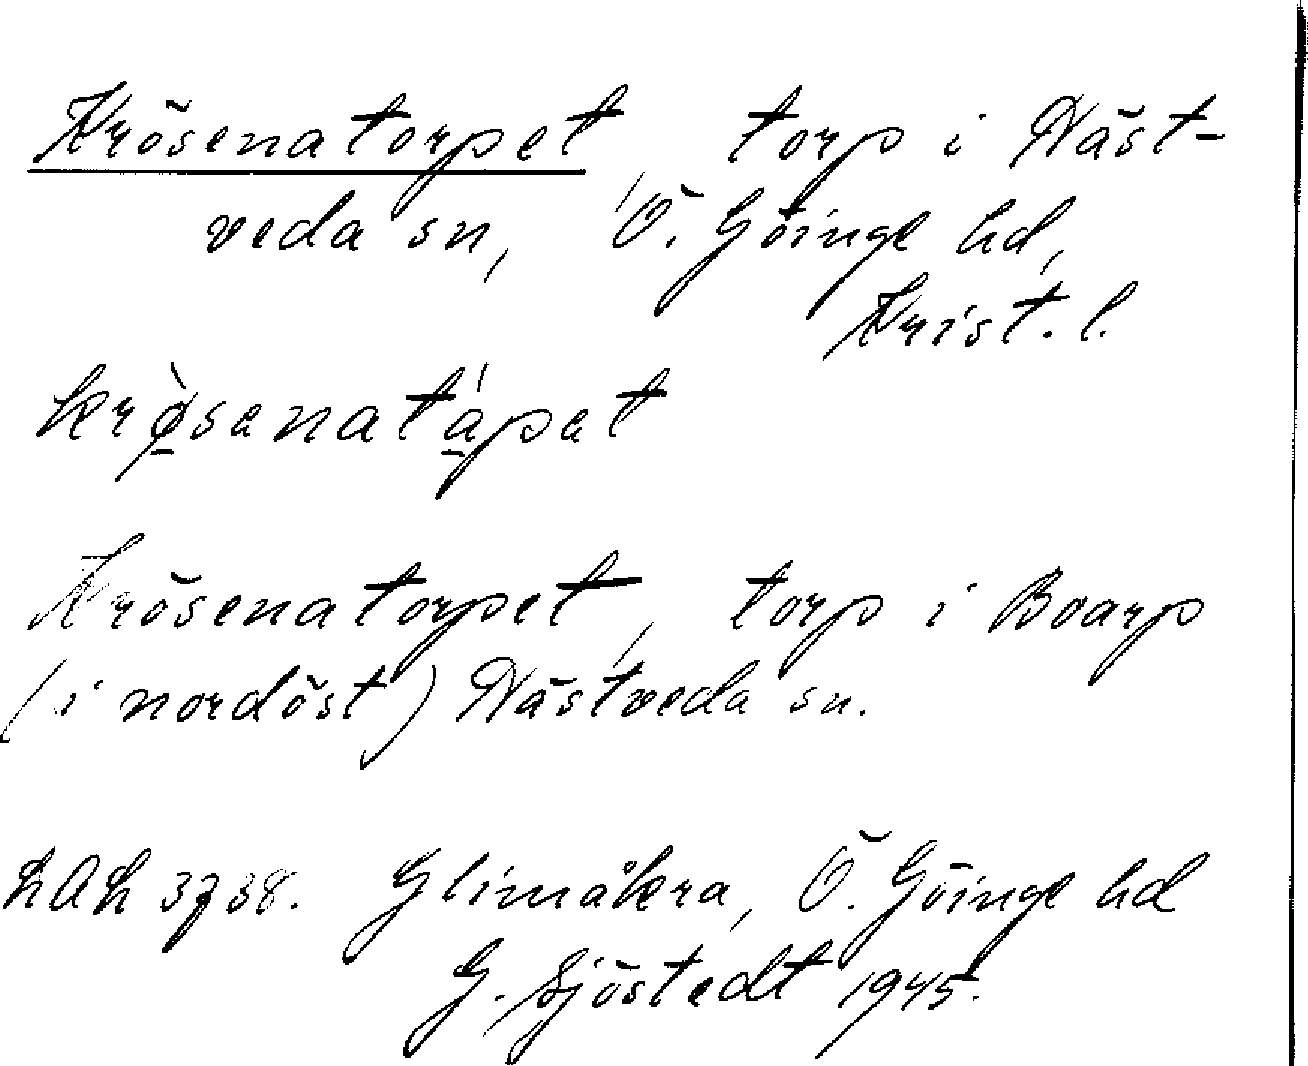 Krösenatorpet, torp i Näst-
veda sn, Ö. Göinge hd,
Krist. l.
krø̀senatápet
Krösenatorpet, torp i Boarp
(i nordöst) Nästveda sn.
LAL 3738. Glimåkra, Ö. Göinge hd
G. Sjöstedt 1945.